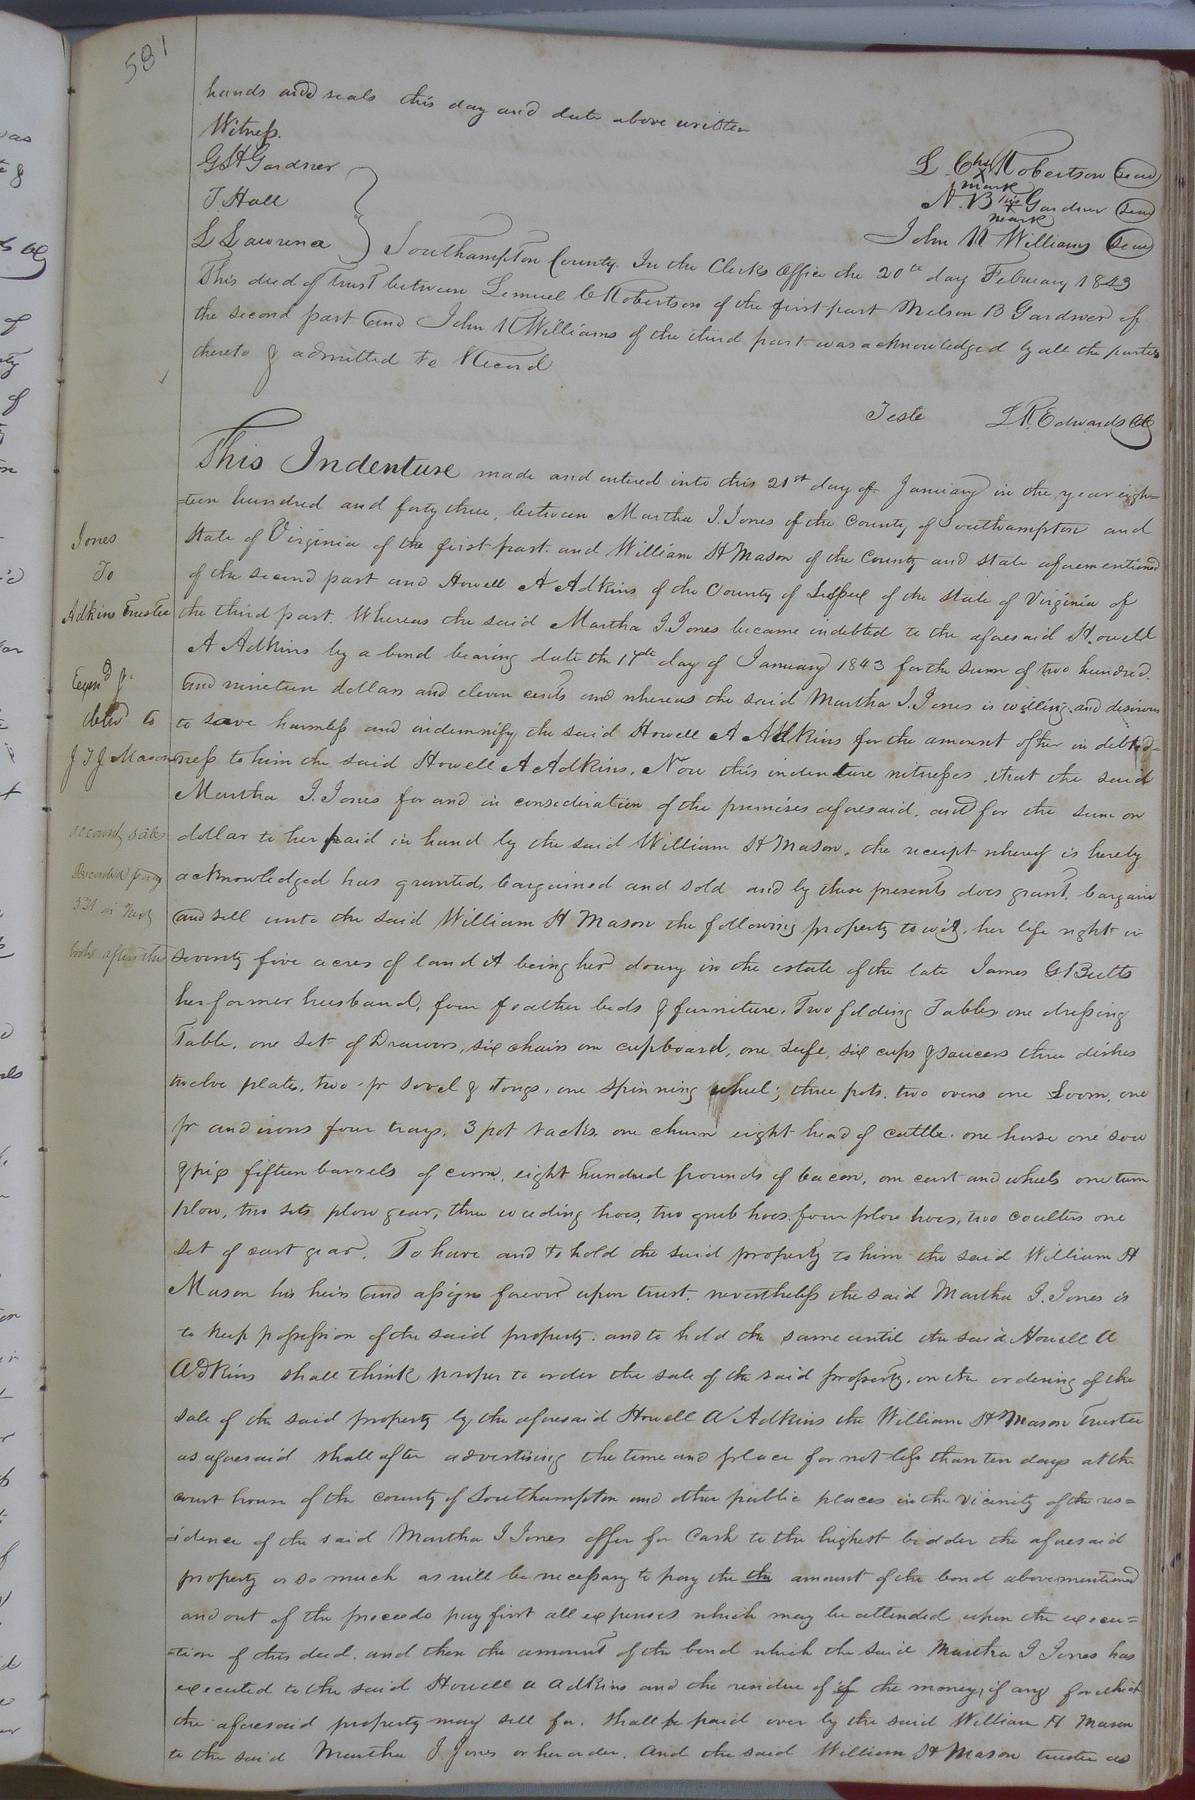 581
hands and seals this day and date above written
Witness.
G H Gardner
T Hall
L Lawrence
L. C his X mark Robertson Seal
N. B his X mark Gardner Seal
John N Williams Seal
Southampton County. In the Clerks Office the 20th day February 1843
This deed of trust between Lemuel C Robertson of the first part Nelson B Gardner of
the second part and John N Williams of the third part was acknowledged by all the parties
thereto & admitted to Record
Teste L R. Edwards Clk
This Indenture made and entered into this 21st day of January in the year eigh=
=teen hundred and forty three, between Martha J. Jones of the County of Southampton and
State of Virginia of the first part. and William H Mason of the County and state aforementioned
of the second part and Howell A Adkins of the County of Sussex of the state of Virginia of
the third part. Whereas the said Martha J. Jones became indebted to the aforesaid Howell
A Adkins by a bond bearing date the 17th day of January 1843 for the sum of two hundred.
and nineteen dollars and eleven cents and whereas the said Martha J. Jones is willing and desirous
to save harmless and indemnify the said Howell A Adkins for the amount of her in debted=
ness to him the said Howell A Adkins. Now this indenture witnesses, that the said
Martha J. Jones for and in consideration of the premises aforesaid. and for the sum on
dollar to her paid in hand by the said William H Mason. the receipt whereof is hereby
acknowledged has granted, bargained and sold and by these presents does grant, bargain
and sell unto the said William H Mason the following property to wit, her life right in
seventy five acres of land it being her dowry in the estate of the late James G. Butts
her former husband, four feather beds & furniture. Two folding Tables one dressing
Table, one set of Drawers, six chairs one cupboard, one safe, six cups & saucers three dishes
twelve plates, two pr sovel & tongs, one spinning wheel; three pots. two ovens one Loom, one
pr andirons four trays, 3 pot racks, one churn eight head of cattle. one horse one sow
& pigs fifteen barrels of corn, eight hundred pounds of bacon, one cart and wheels one turn
plow, two sets plow gear, three weeding hoes, two grub hoes. four plow hoes, two coulters one
set of cart gear. To have and to hold the said property to him the said William H
Mason his heirs and assigns forever upon trust. nevertheless the said Martha J. Jones is
to keep possession of the said property. and to hold the same until the said Howell A
Adkins shall think proper to order the sale of the said property, on the ordering of the
sale of the said property by the aforesaid Howell A Adkins the William H Mason Trustee
as aforesaid shall after advertising the time and place for not less than ten days at the
court house of the county of Southampton and other public places in the vicinity of the res=
=idence of the said Martha J Jones offer for Cash to the highest bidder the aforesaid
property or so much as will be necessary to pay the the amount of the bond abovementioned
and out of the proceeds pay first all expenses which may be attended upon the execu=
=tion of this deed. and then the amount of the bond which the said Martha J Jones has
executed to the said Howell A Adkins and the residue of of the money, if any for which
the aforesaid property may sell for. shall be paid over by the said William H Mason
to the said Martha J Jones or her order. And the said William H Mason trustee as
Jones
To
Adkins Trustee
Exmd &
deld to
J T J Mason
account sales
Recorded page
531 in next
book after this